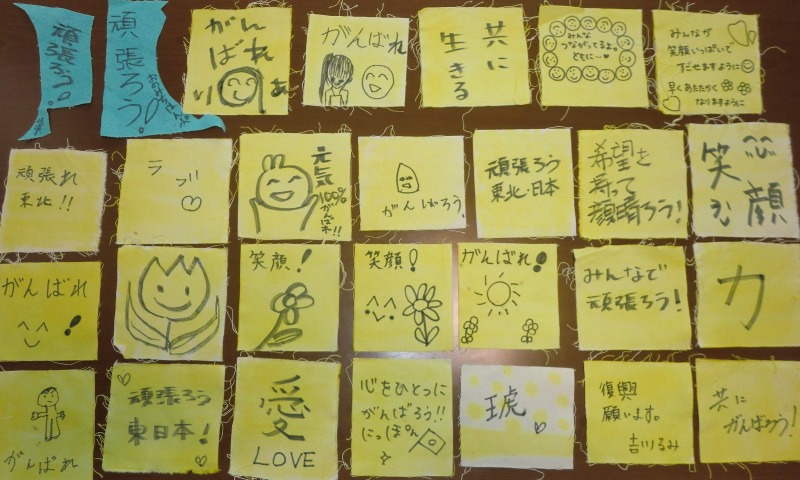 頑張ろう。
頑張ろう。
がん
ばれ
り
あ
がんばれ
共に
生きる
みんな
つながってるよ。
ともに…♥
みんなが
笑顔いっぱいで
すごせますように
早くあたたかく
なりますように
頑張れ
東北!!
ラブ!!
元気
100%
がんばれ!!
がんばろう。
頑張ろう
東北・日本
希望を
持って
顔晴ろう!
笑顔
がんばれ
!
笑顔!
笑顔!
がんばれ!
みんなで
頑張ろう!
力
がんばれ
頑張ろう
東日本!
愛
LOVE
心をひとつに
がんばろう!!
にっぽん
琥
復興
願います。
吉川るみ
共に
がんばろう!